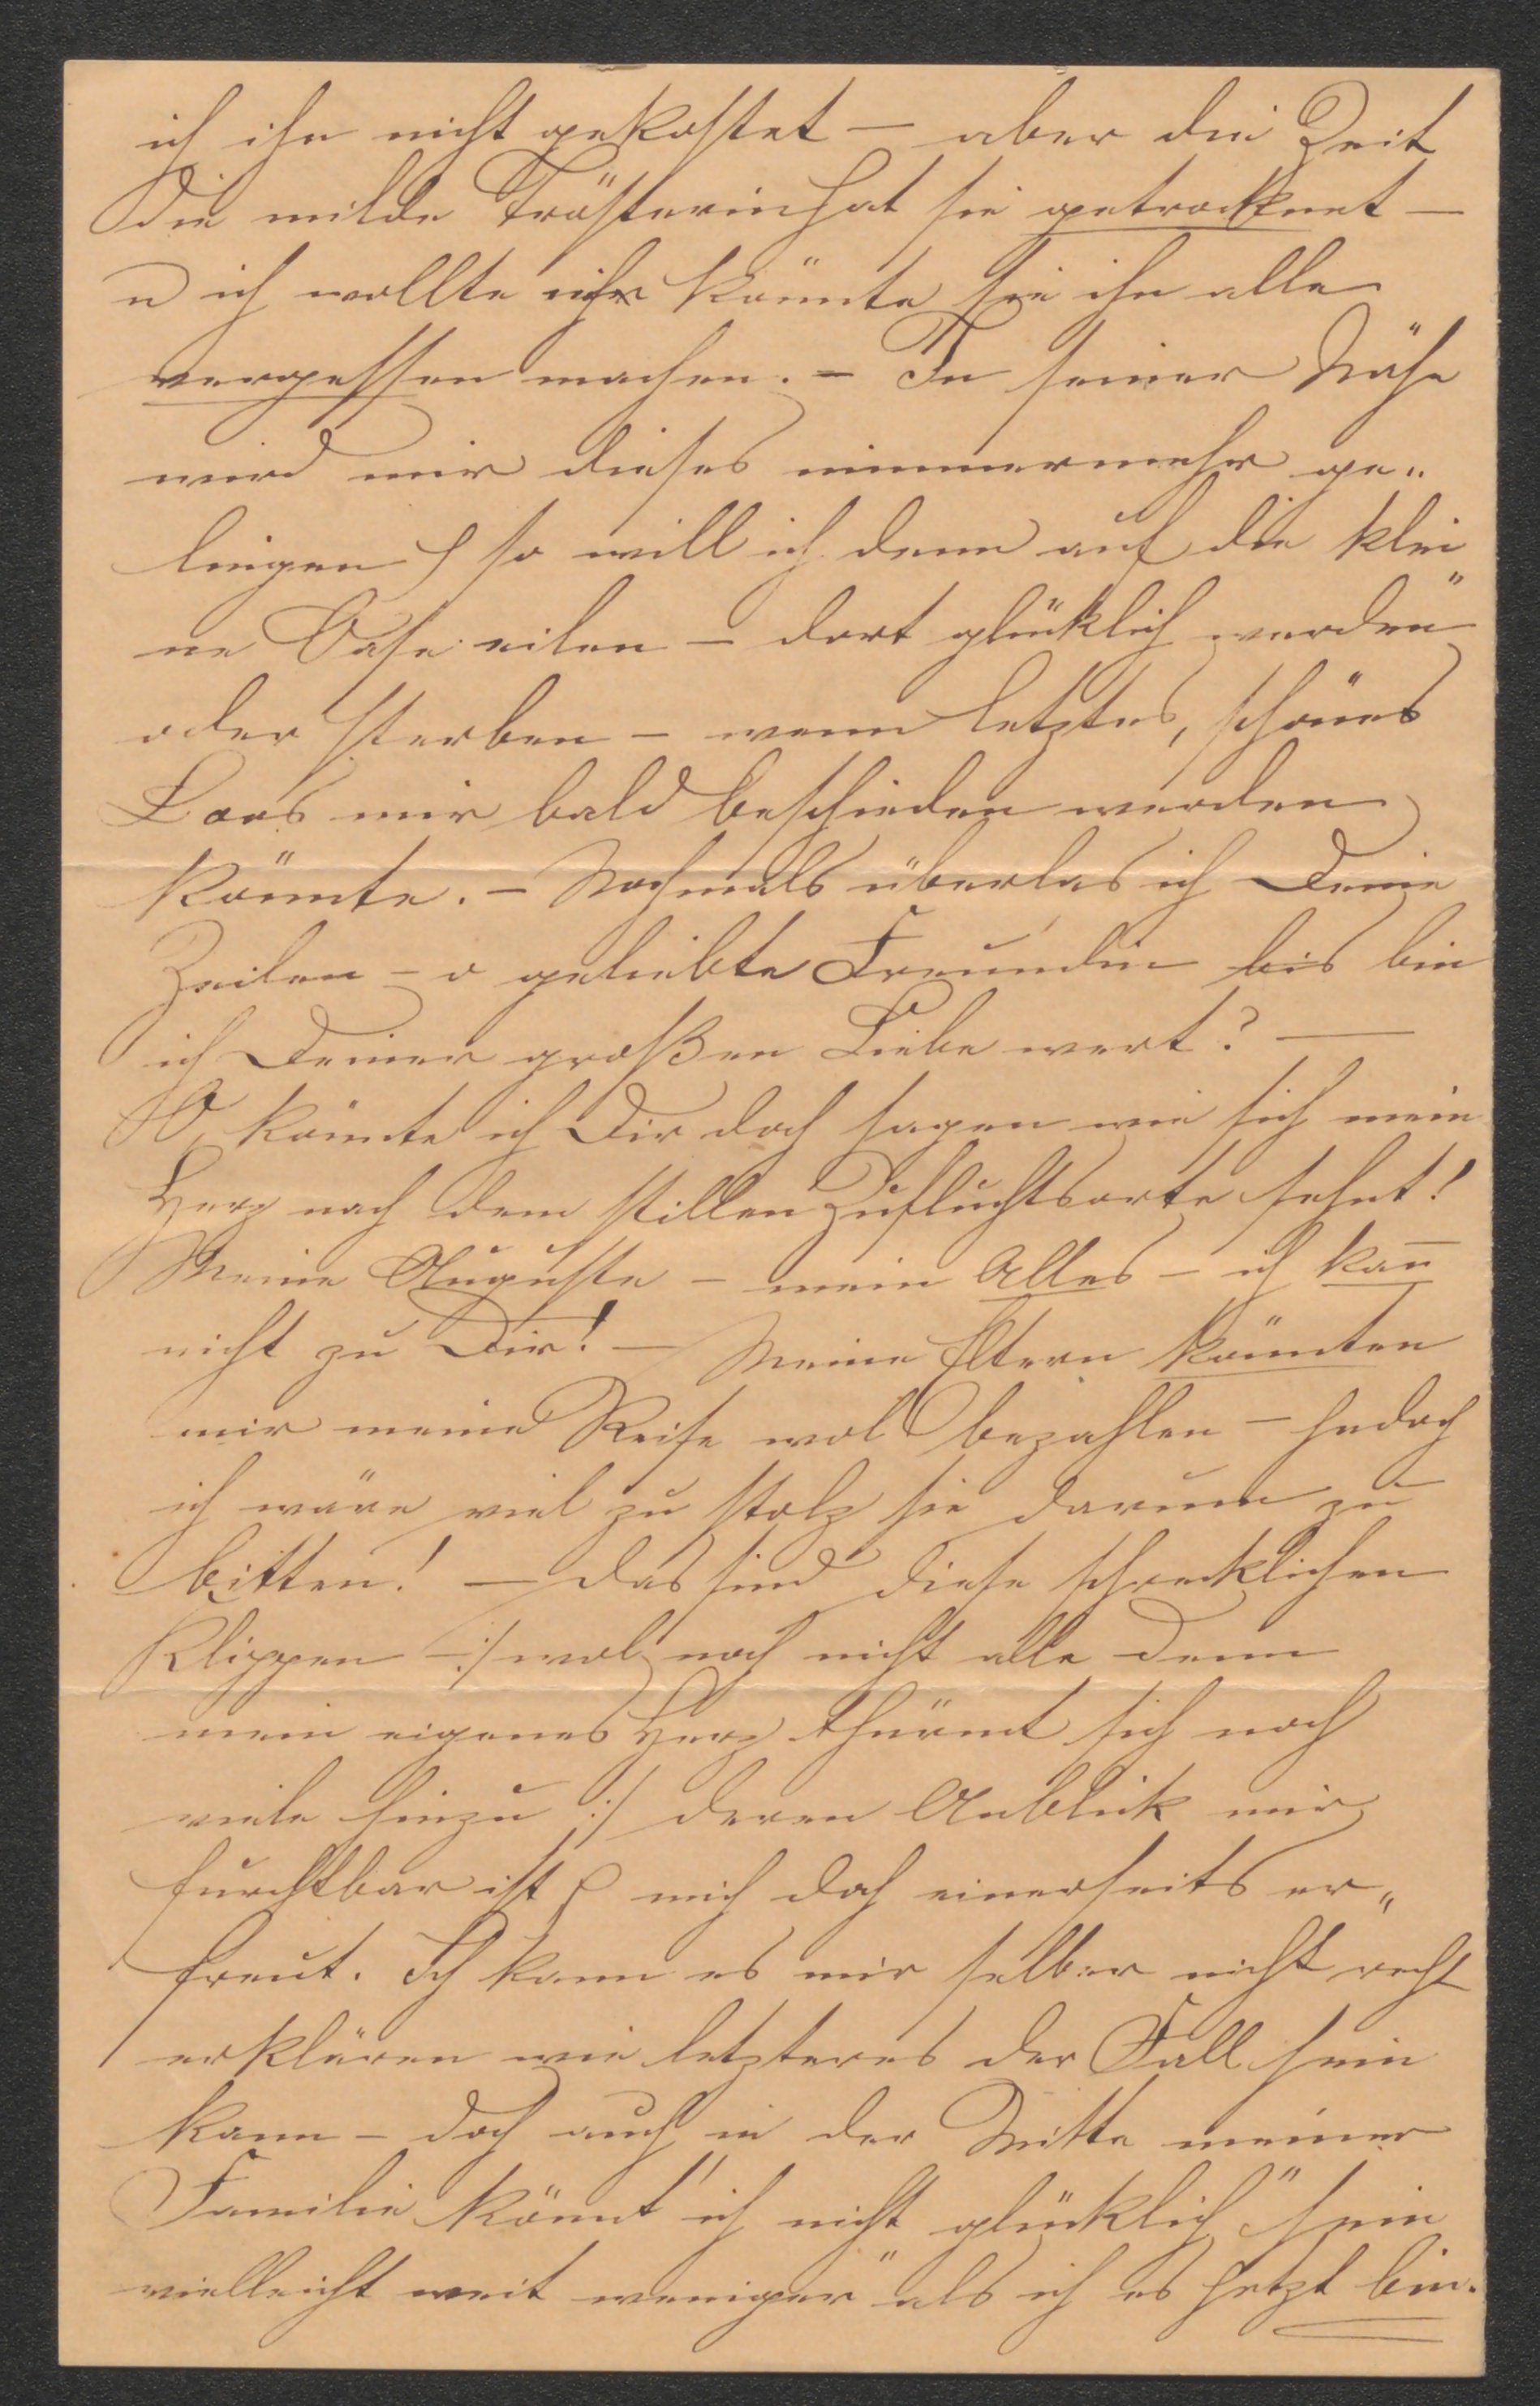 ich ihn nicht gekostet — aber die Zeit
die milde Trösterin hat sie getrocknet —
u ich wollte ich könnte sie ihn alle
vergessen machen. – In seiner Nähe
wird mir dieses nimmermehr ge„
lingen so will ich denn auf die klei
ne Oase eilen – dort glücklich werden"
oder sterben – wenn letztes, schönes
Loos mir bald beschieden werden
könnte. – Nochmals überlas ich Deine
Zeilen – o geliebte Freundin bis bin
ich Deiner großen Liebe wert? —
O könnte ich Dir doch sagen wie sich mein
Herz nach dem stillen Zufluchtsorte sehnt!
Meine Auguste – mein Alles – ich kañ
nicht zu Dir! — Meine Eltern könnten
mir meine Reise wol bezahlen – jedoch
ich wäre viel zu stolz sie darum zu
bitten! — das sind diese schrecklichen
Klippen –:/ wol noch nicht alle denn
mein eigenes Herz thürmt sich noch
viele hinzu :/ deren Anblick mir
furchtbar ist & mich doch einerseits er„
freut. Ich kann es mir selber nicht recht
erklären wie letzteres der Fall sein
kann – doch auch in der Mitte meiner
Familie könnt' ich nicht glücklich" sein
vielleicht weit weniger" als ich es jetzt bin.